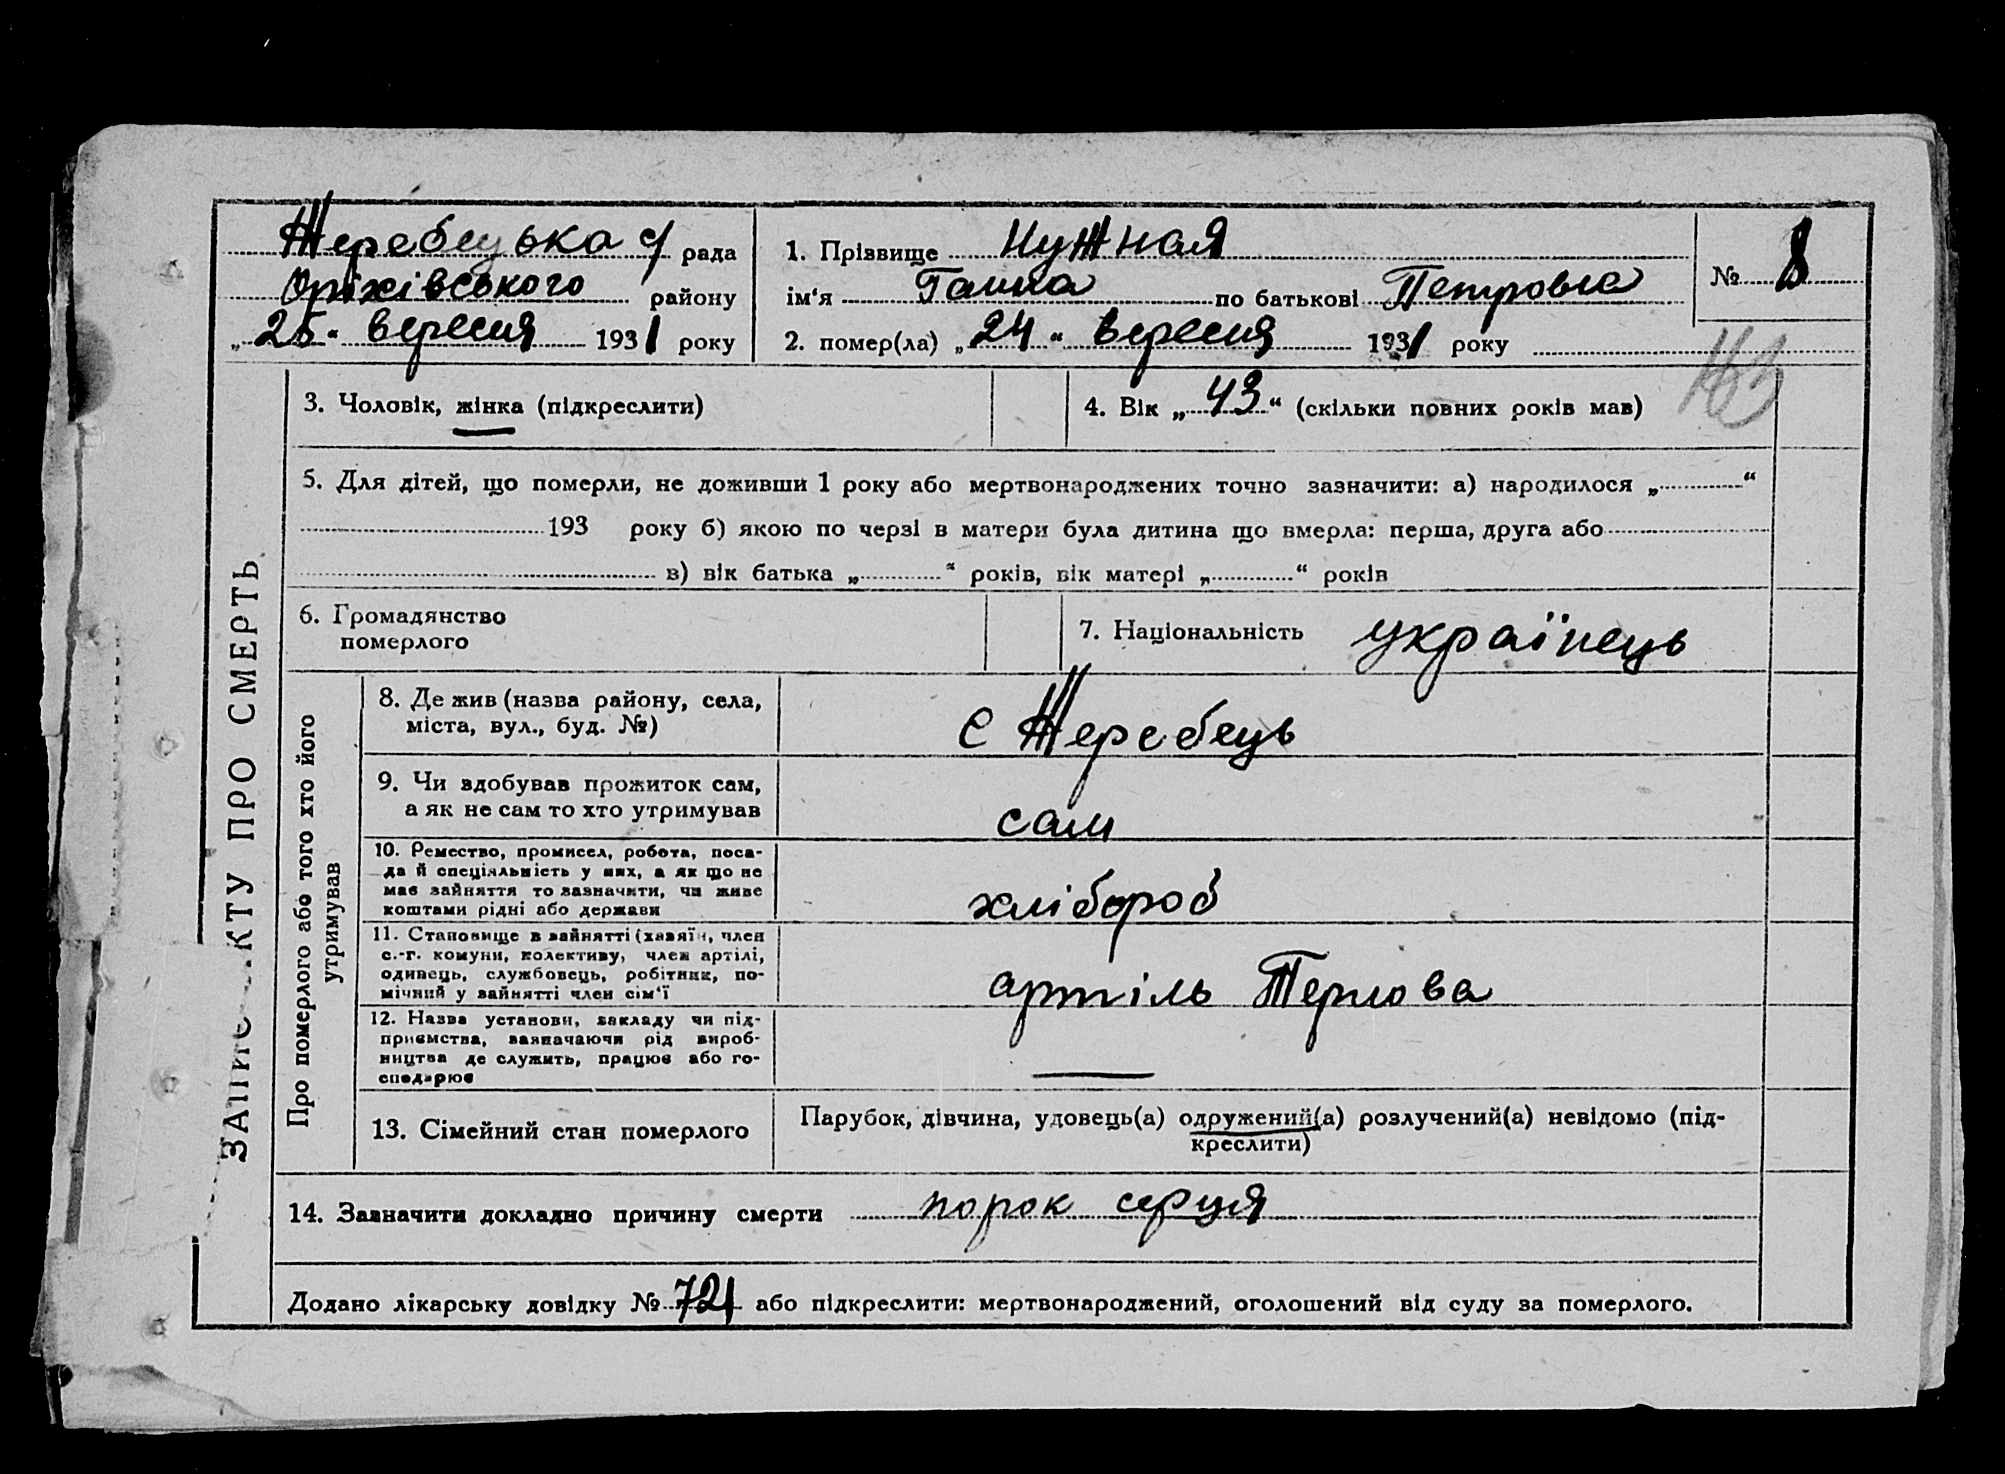 Жеребецька с/ рада
Оріхівського району
„25“ вересня 1931 року
1. Прізвище Нужная
ім‘я Ганна по батькові Петровна
2. помер(ла) „24“ вересня 1931 року
№ 8
163
3. Чоловік, жінка (підкреслити)
4. Вік „43“ (скільки повних років мав)
5. Для дітей, що померли, не доживши 1 року або мертвонароджених точно зазначити: а) народилося „ “
193 року б) якою по черзі в матери була дитина що вмерла: перша, друга або
в) вік батька „ “ років, вік матері „ “ років
6. Громадянство
померлого
7. Національність українець
ЗАПИС АКТУ ПРО СМЕРТЬ
Про померлого або того хто його
утримував
8. Де жив (назва району, села,
міста, вул., буд. №)
с Жеребець
9. Чи здобував прожиток сам,
а як не сам то хто утримував
сам
10. Ремество, промисел, робота, поса-
да й спеціяльність у них, а як що не
має зайняття то зазначити, чи живе
коштами рідні або держави
хлібороб
11. Становище в зайнятті (хазяїн, член
с.-г. комуни, колективу, член артілі,
одинець, службовець, робітник, по-
мічний у зайнятті член сім‘ї
артіль Терлова
12. Назва установи, закладу чи під-
приємства, зазначаючи рід вироб-
ництва де служить, працює або го-
сподарює
—
13. Сімейний стан померлого
Парубок, дівчина, удовець(а) одружений(а) розлучений(а) невідомо (під-
креслити)
14. Зазначити докладно причину смерти порок серця
Додано лікарську довідку № 724 або підкреслити: мертвонароджений, оголошений від суду за померлого.